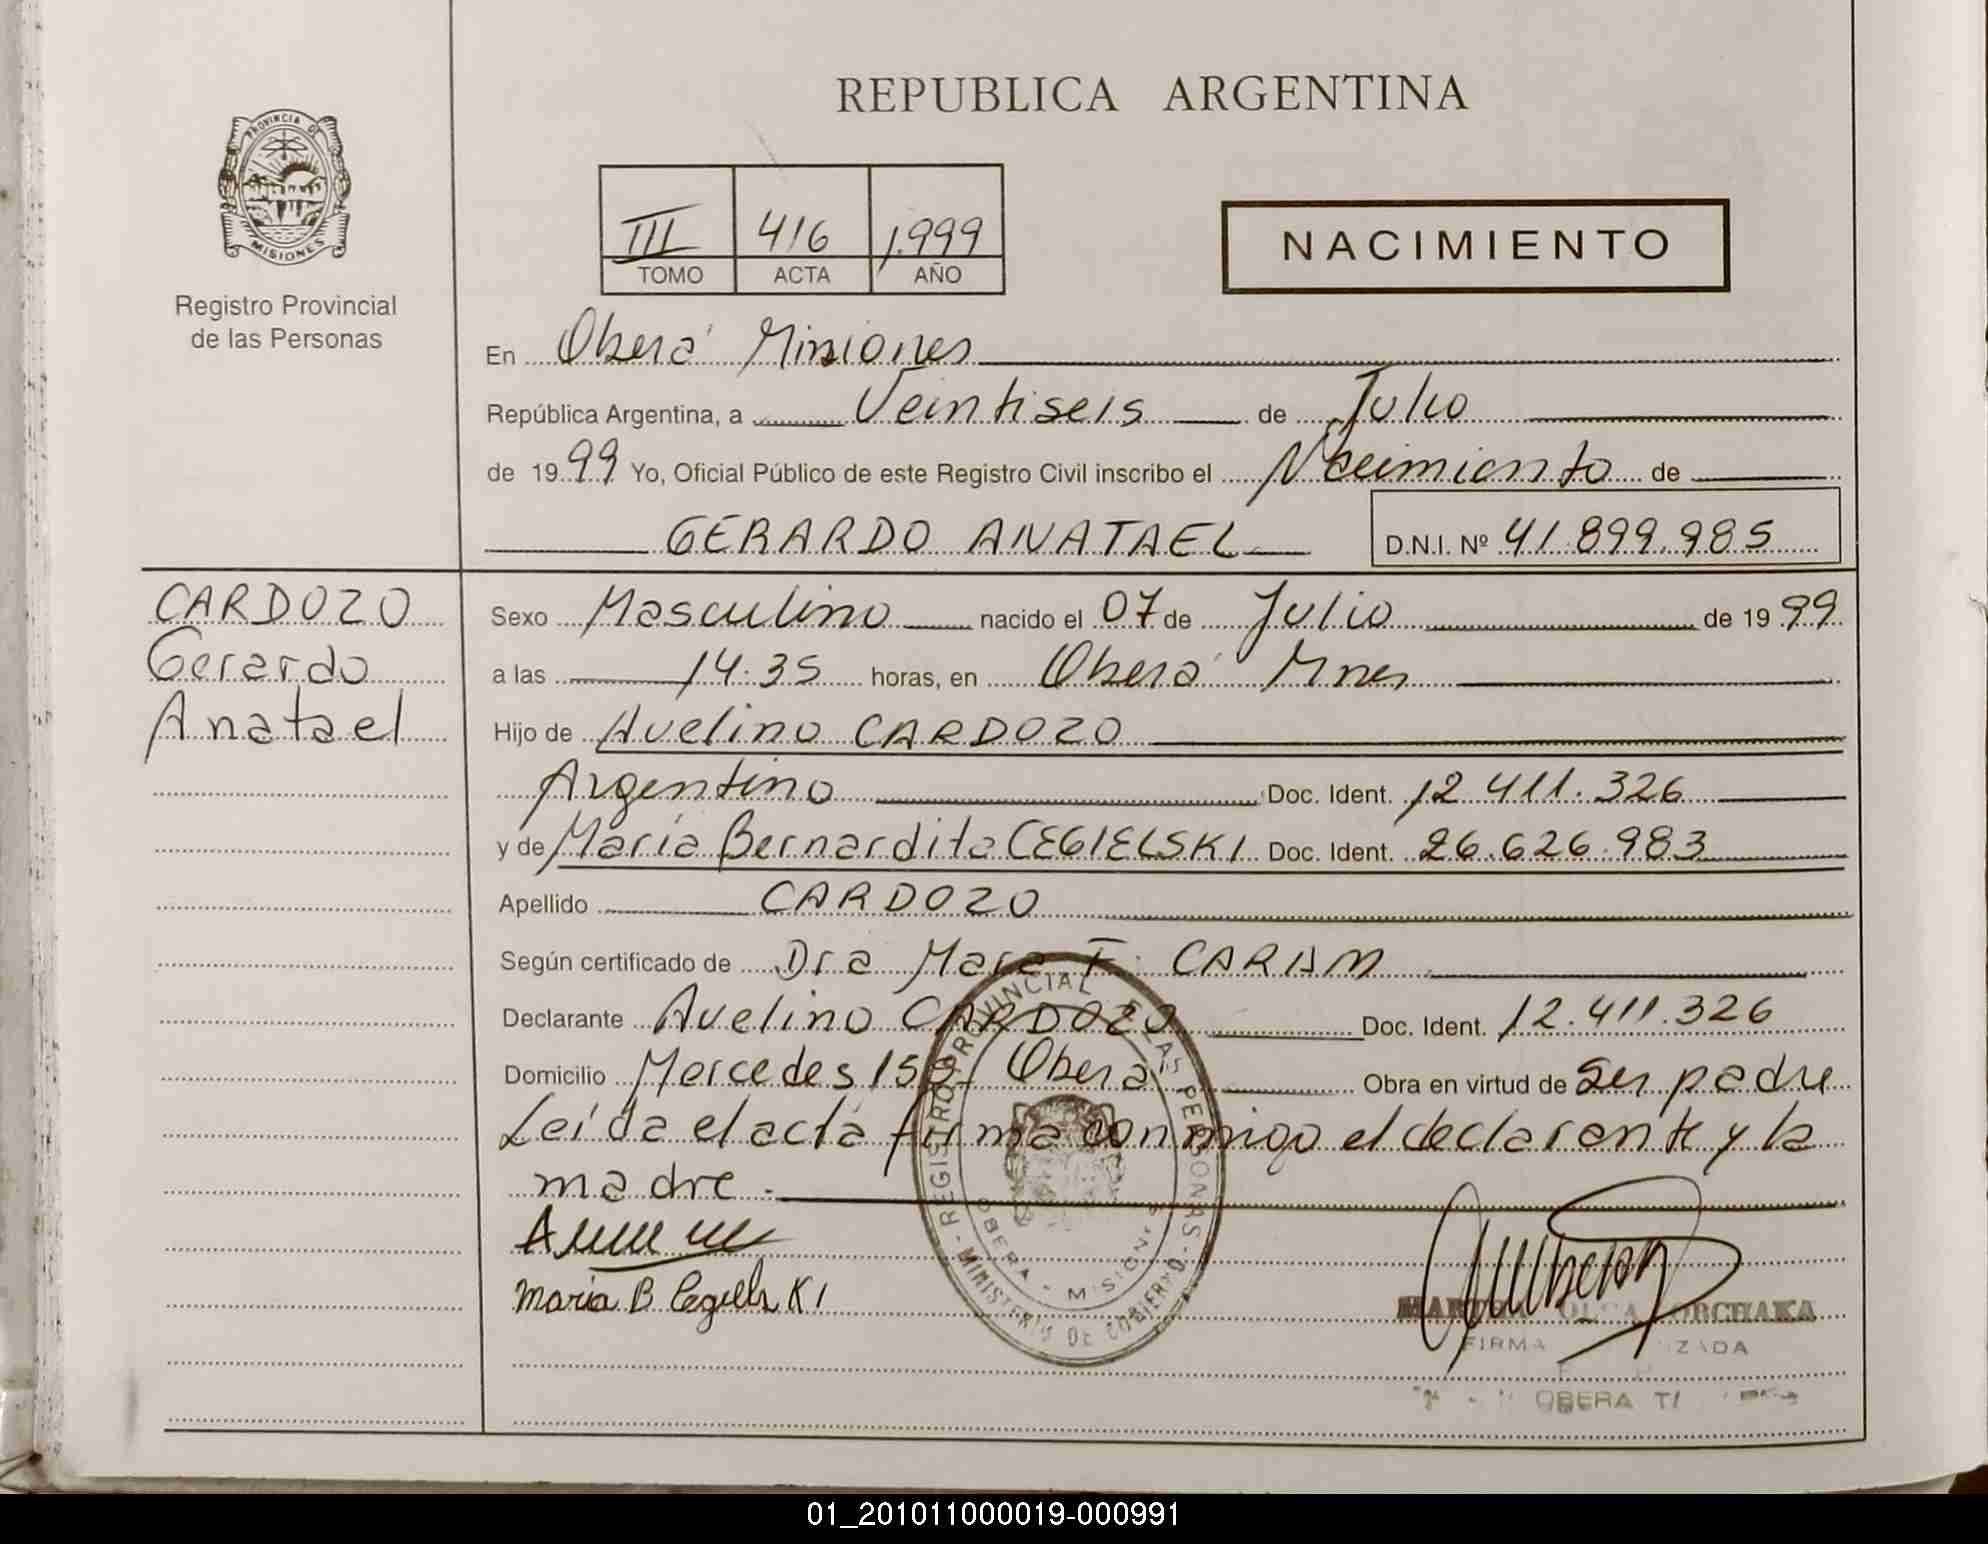 REPUBLICA ARGENTINA
PROVINCIA DE
MISIONES
Registro Provincial
de las Personas
III 416 1.999
TOMO ACTA AÑO
NACIMIENTO
En Oberá Misiones
República Argentina, a Veintiseis de Julio
de 1999 Yo, Oficial Público de este Registro Civil inscribo el Nacimiento de
GERARDO ANATAEL D.N.I. Nº 41.899.985
CARDOZO
Gerardo
Anatael
Sexo Masculino nacido el 07 de Julio de 1999
a las 14:35 horas, en Oberá Mnes
Hijo de Avelino CARDOZO
Argentino Doc. Ident. 12.411.326
y de María Bernardita CEGIELSKI Doc. Ident. 26.626.983
Apellido CARDOZO
Según certificado de Dra Mara F. CARAM
Declarante Avelino CARDOZO Doc. Ident. 12.411.326
Domicilio Mercedes Oberá Obra en virtud de ser padre
Leída el acta firma conmigo el declarante y la
madre.
REGISTRO PROVINCIAL PERSONAS
OBERA - MISIONES
MINISTERIO DE GOBIERNO
Maria B
FIRMA
OBERA
01_201011000019-000991